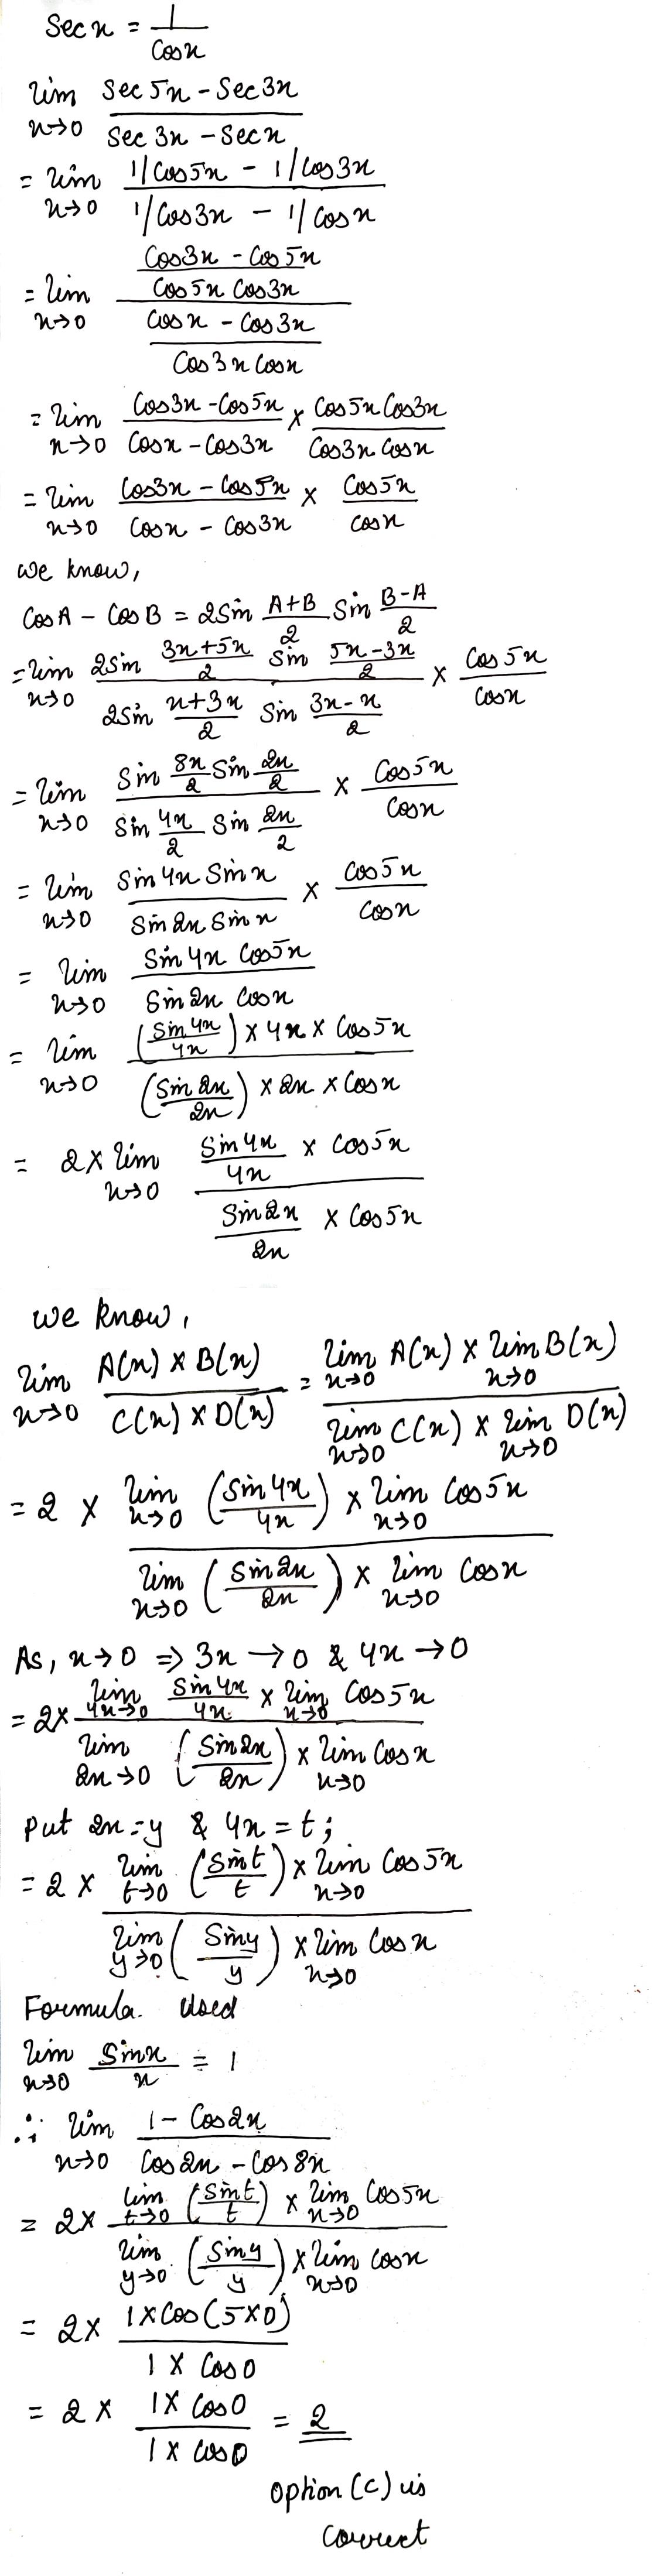 Sec x = 1/Cosx
lim x→0 (Sec 5x - Sec 3x)/(Sec 3x - Sec x)
= lim x→0 (1/Cos5x - 1/Cos3x)/(1/Cos3x - 1/Cosx)
= lim x→0 ((Cos3x - Cos5x)/(Cos5x Cos3x))/((Cosx - Cos3x)/(Cos3x Cosx))
= lim x→0 (Cos3x - Cos5x)/(Cosx - Cos3x) × (Cos5x Cos3x)/(Cos3x Cosx)
= lim x→0 (Cos3x - Cos5x)/(Cosx - Cos3x) × Cos5x/Cosx
we know,
CosA - CosB = 2Sin (A+B)/2 Sin (B-A)/2
= lim x→0 (2Sin (3x+5x)/2 Sin (5x-3x)/2)/(2Sin (x+3x)/2 Sin (3x-x)/2) × Cos5x/Cosx
= lim x→0 (Sin 8x/2 Sin 2x/2)/(Sin 4x/2 Sin 2x/2) × Cos5x/Cosx
= lim x→0 (Sin4x Sinx)/(Sin2x Sinx) × Cos5x/Cosx
= lim x→0 (Sin4x Cos5x)/(Sin2x Cosx)
= lim x→0 ((Sin4x/4x) × 4x × Cos5x)/((Sin2x/2x) × 2x × Cosx)
= 2× lim x→0 (Sin4x/4x × Cos5x)/(Sin2x/2x × Cos5x)
we know,
lim x→0 (A(x) × B(x))/(C(x) × D(x)) = (lim x→0 A(x) × lim x→0 B(x))/(lim x→0 C(x) × lim x→0 D(x))
= 2 × (lim x→0 (Sin4x/4x) × lim x→0 Cos5x)/(lim x→0 (Sin2x/2x) × lim x→0 Cosx)
As, x→0 ⇒ 3x→0 & 4x→0
= 2× (lim 4x→0 Sin4x/4x × lim x→0 Cos5x)/(lim 2x→0 (Sin2x/2x) × lim x→0 Cosx)
Put 2x=y & 4x=t;
= 2 × (lim t→0 (Sint/t) × lim x→0 Cos5x)/(lim y→0 (Siny/y) × lim x→0 Cosx)
Formula. Used
lim x→0 Sinx/x = 1
∴ lim x→0 (1 - Cos2x)/(Cos2x - Cos8x)
= 2× (lim t→0 (Sint/t) × lim x→0 Cos5x)/(lim y→0 (Siny/y) × lim x→0 Cosx)
= 2× (1×Cos(5×0))/(1×Cos0)
= 2× (1×Cos0)/(1×Cos0) = 2
Option (c) is
Correct